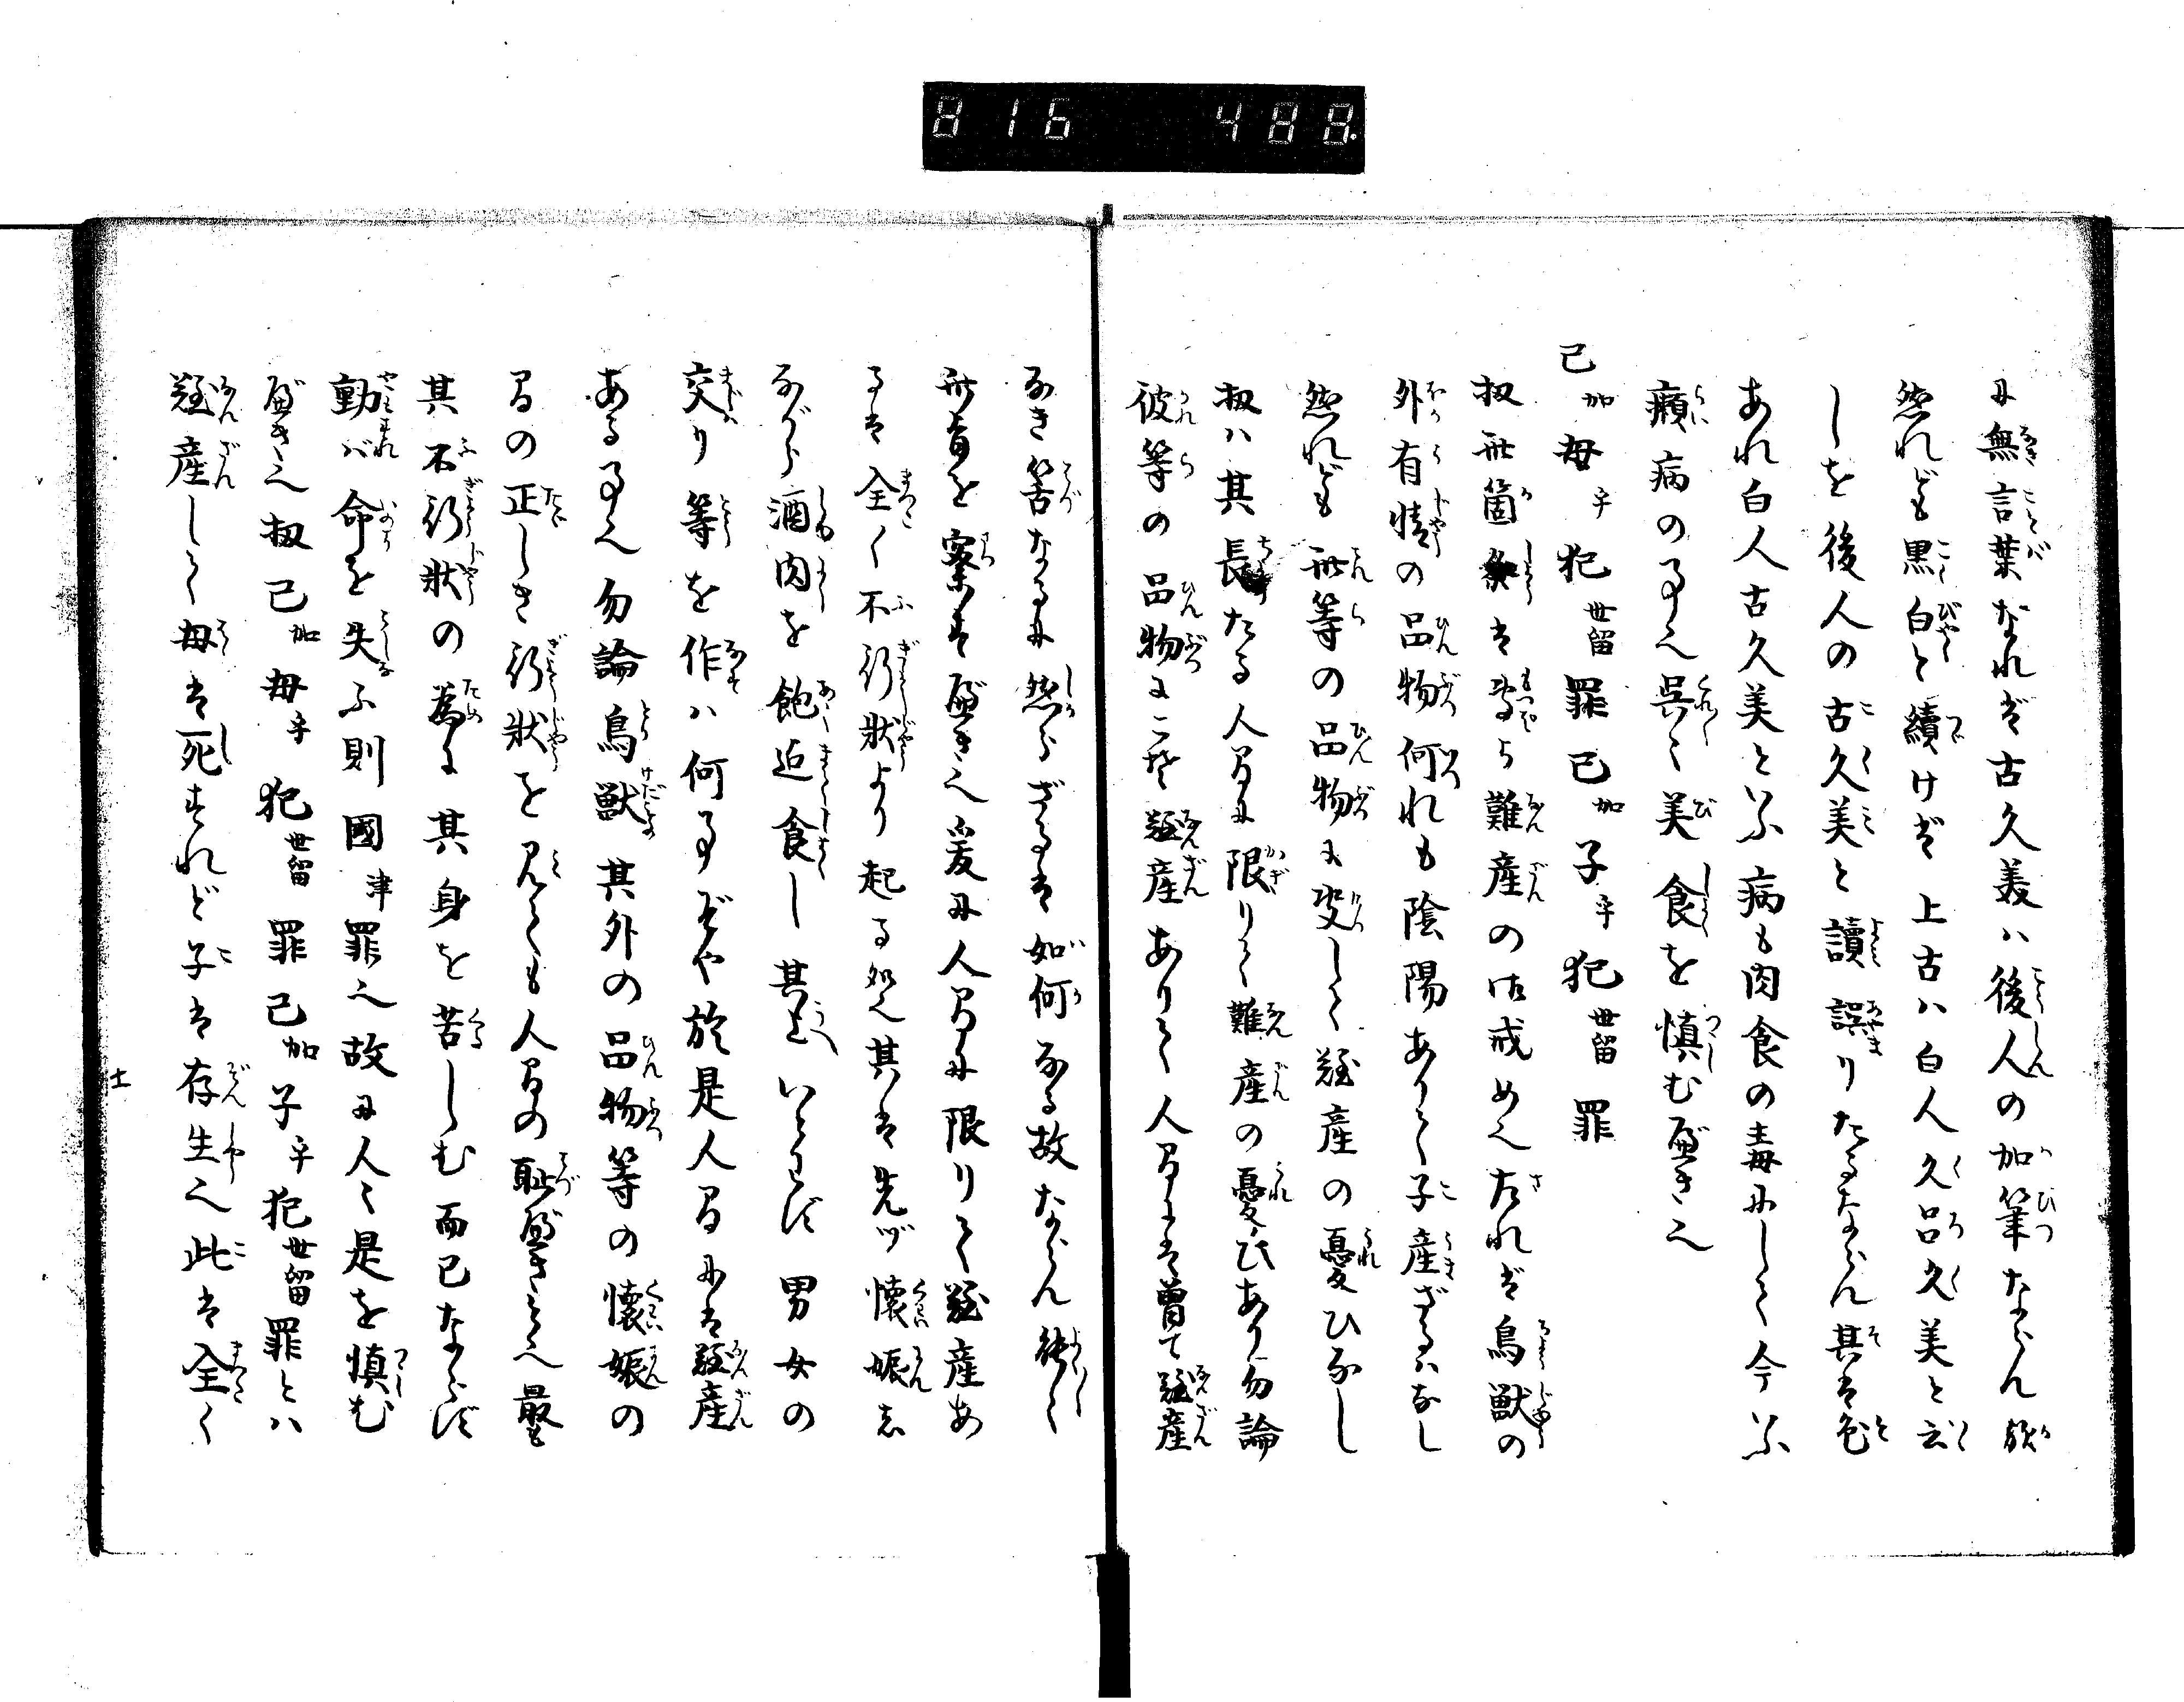 816 488
に無言葉なれば古久美ハ後人の加筆ならん歟
然れども黒白と續けば上古ハ白人久呂久美と云
しを後人の古久美と讀誤りたるならん其は色
あれ白人古久美といふ病も肉食の毒にして今いふ
癩病の事也呉〻美食を慎む可き也
己加母乎犯世留罪己加子乎犯世留罪
扨此箇条は専ら難産の御戒め也左れば鳥獣の
外有情の品物何れも陰陽ありて子産ざるハなし
然れども此等の品物に更して難産の憂ひなし
扨ハ其長たる人間に限りて難産の憂ひあり勿論
彼等の品物にこそ難産ありて人間には曽て難産
なき筈なるに然らざるは如何なる故ならん能〻
此旨を案ず可き也爰に人間に限りて難産あ
るは全く不行状より起る処也其は先ヅ懐娠し
ながら酒肉を飽迫食し其上いとはず男女の
交り等を作ハ何事ぞや於是人間には難産
ある事也勿論鳥獣其外の品物等の懐娠の
間の正しき行状を見ても人間の恥可きこと也最も
其不行状の為に其身を苦しむ而已ならず
動バ命を失ふ則國津罪也故に人〻是を慎む
可き也扨己加母乎犯世留罪己加子乎犯世留罪とハ
難産して母は死すれど子は存生也此は全く
十一